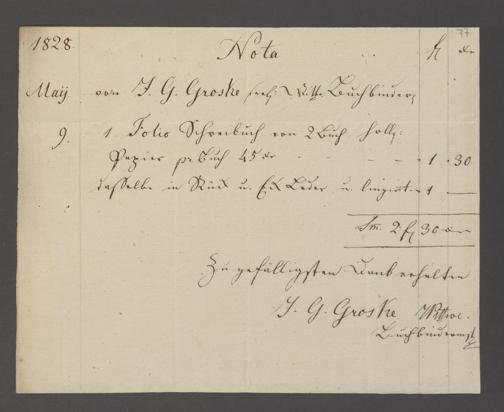 77
1828. Nota fl xr
Maÿ von J. G. Groske seel. Witt. Buchbinder,
9. 1 Folio Schreibuch von 2 Buch holl:
Papier pr Buch 45 xr - - - 1 . 30
dasselbe in Rück u. Eck Leder u. linirt - 1 —
Sm. 2 fl 30 xr
Zu gefälligsten Dank erhalten
J. G. Groske Wittwe.
Buchbinderin